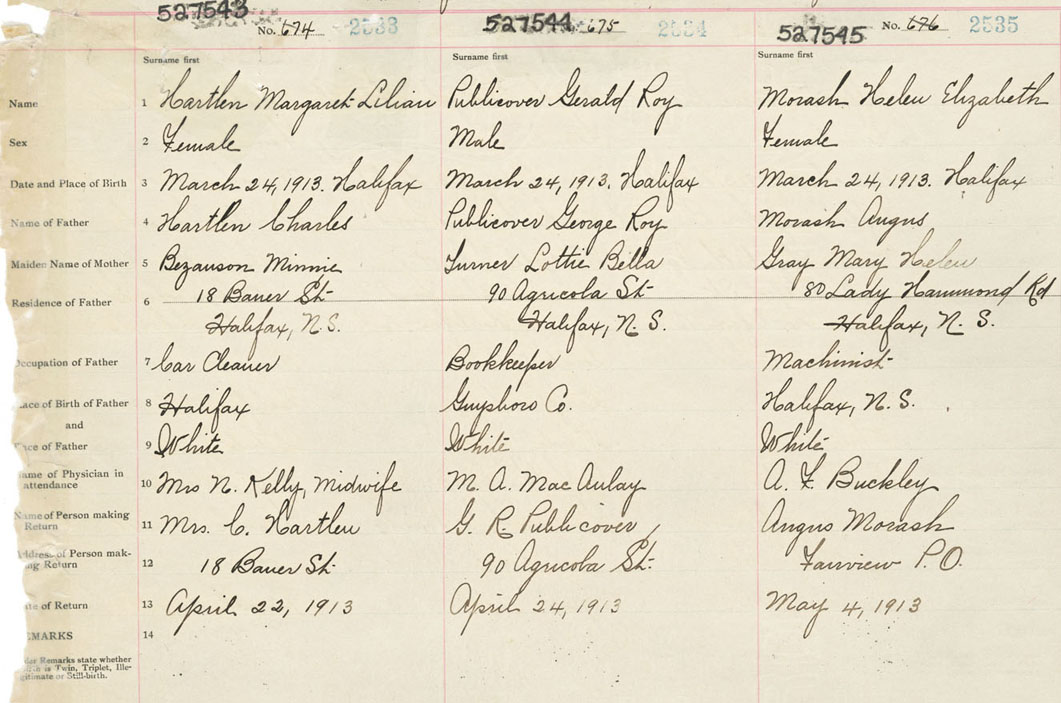 527543 527544 527545
No. 674 2533 675 2534 No. 676 2535
Surname first Surname first Surname first
Name 1 Hartlen Margaret Lilian Publicover Gerald Roy Morash Helen Elizabeth
Sex 2 Female Male Female
Date and Place of Birth 3 March 24, 1913. Halifax March 24, 1913. Halifax March 24, 1913. Halifax
Name of Father 4 Hartlen Charles Publicover George Roy Morash Angus
Maiden Name of Mother 5 Bezanson Minnie Turner Lottie Bella Gray Mary Helen
Residence of Father 6 18 Bauer St. 90 Agricola St. 80 Lady Hammond Rd
Halifax, N.S. Halifax, N.S. Halifax, N.S.
Occupation of Father 7 Car Cleaner Bookkeeper Machinist
lace of Birth of Father 8 Halifax Guysboro Co. Halifax, N.S.
and
ace of Father 9 White White White
ame of Physician in
attendance 10 Mrs N. Kelly, Midwife M. A. MacAulay A. F. Buckley
Name of Person making
Return 11 Mrs. C. Hartlen G. R. Publicover Angus Morash
Address of Person mak-
ing Return 12 18 Bauer St. 90 Agricola St. Fairview P.O.
te of Return 13 April 22, 1913 April 24, 1913 May 4, 1913
EMARKS 14
der Remarks state whether
is Twin, Triplet, Ille-
gitimate or Still-birth.